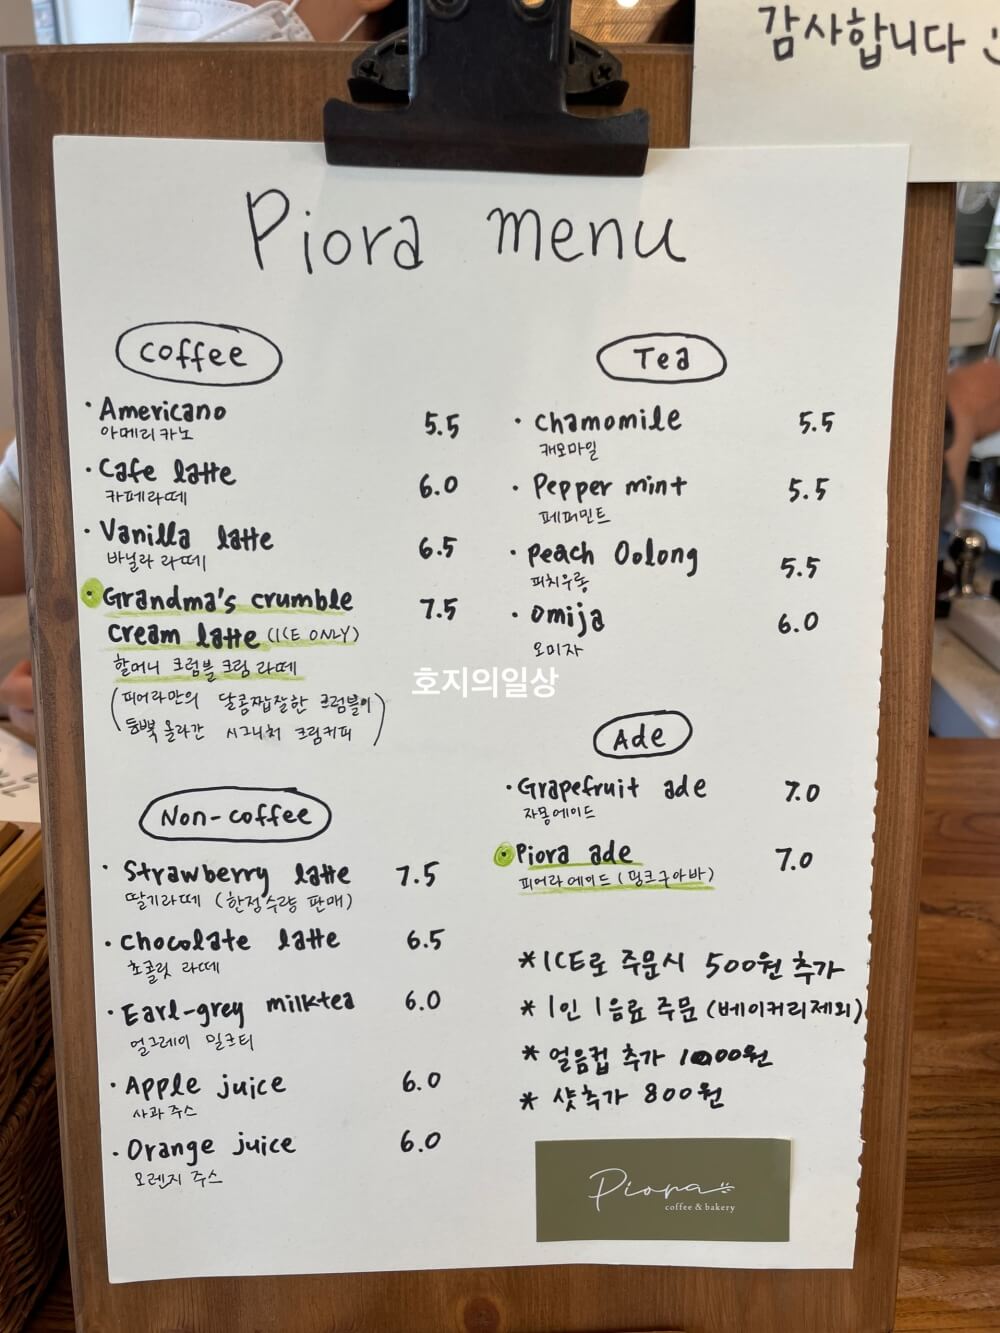 감사합니다
Piora menu
Coffee
· Americano 5.5
아메리카노
· Cafe latte 6.0
카페라떼
· Vanilla latte 6.5
바닐라 라떼
· Grandma's crumble 7.5
cream latte (ICE ONLY)
할머니 크럼블 크림 라떼
(피어라만의 달콤짭잘한 크럼블이
듬뿍 올라간 시그니처 크림커피)
Non-coffee
· Strawberry latte 7.5
딸기라떼 (한정수량 판매)
· Chocolate latte 6.5
초콜릿 라떼
· Earl-grey milktea 6.0
얼그레이 밀크티
· Apple juice 6.0
사과주스
· Orange juice 6.0
오렌지 주스
Tea
· Chamomile 5.5
캐모마일
· Pepper mint 5.5
페퍼민트
· Peach Oolong 5.5
피치우롱
· Omija 6.0
오미자
호지의일상
Ade
· Grapefruit ade 7.0
자몽에이드
· Piora ade 7.0
피어라 에이드 (핑크구아바)
* ICE로 주문시 500원 추가
* 1인 1음료 주문 (베이커리제외)
* 얼음컵 추가 1000원
* 샷추가 800원
Piora
coffee & bakery